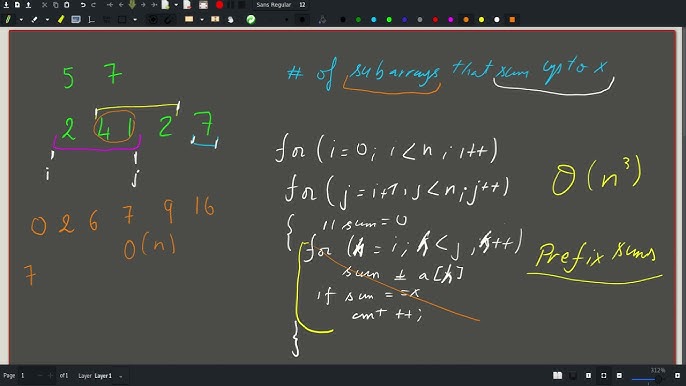 Sans Regular 12
# of subarrays that sum up to x
5 7
2 4 1 2 7
i j
0 2 6 7 9 16
O(n)
7
for (i=0; i<n; i++)
for (j=i+1; j<n; j++)
{ // sum=0
for (k=i; k<j, k++)
sum += a[k]
if sum ==x
cnt ++;
}
O(n³)
Prefix sums
Page 1 of 1 Layer Layer 1
112%